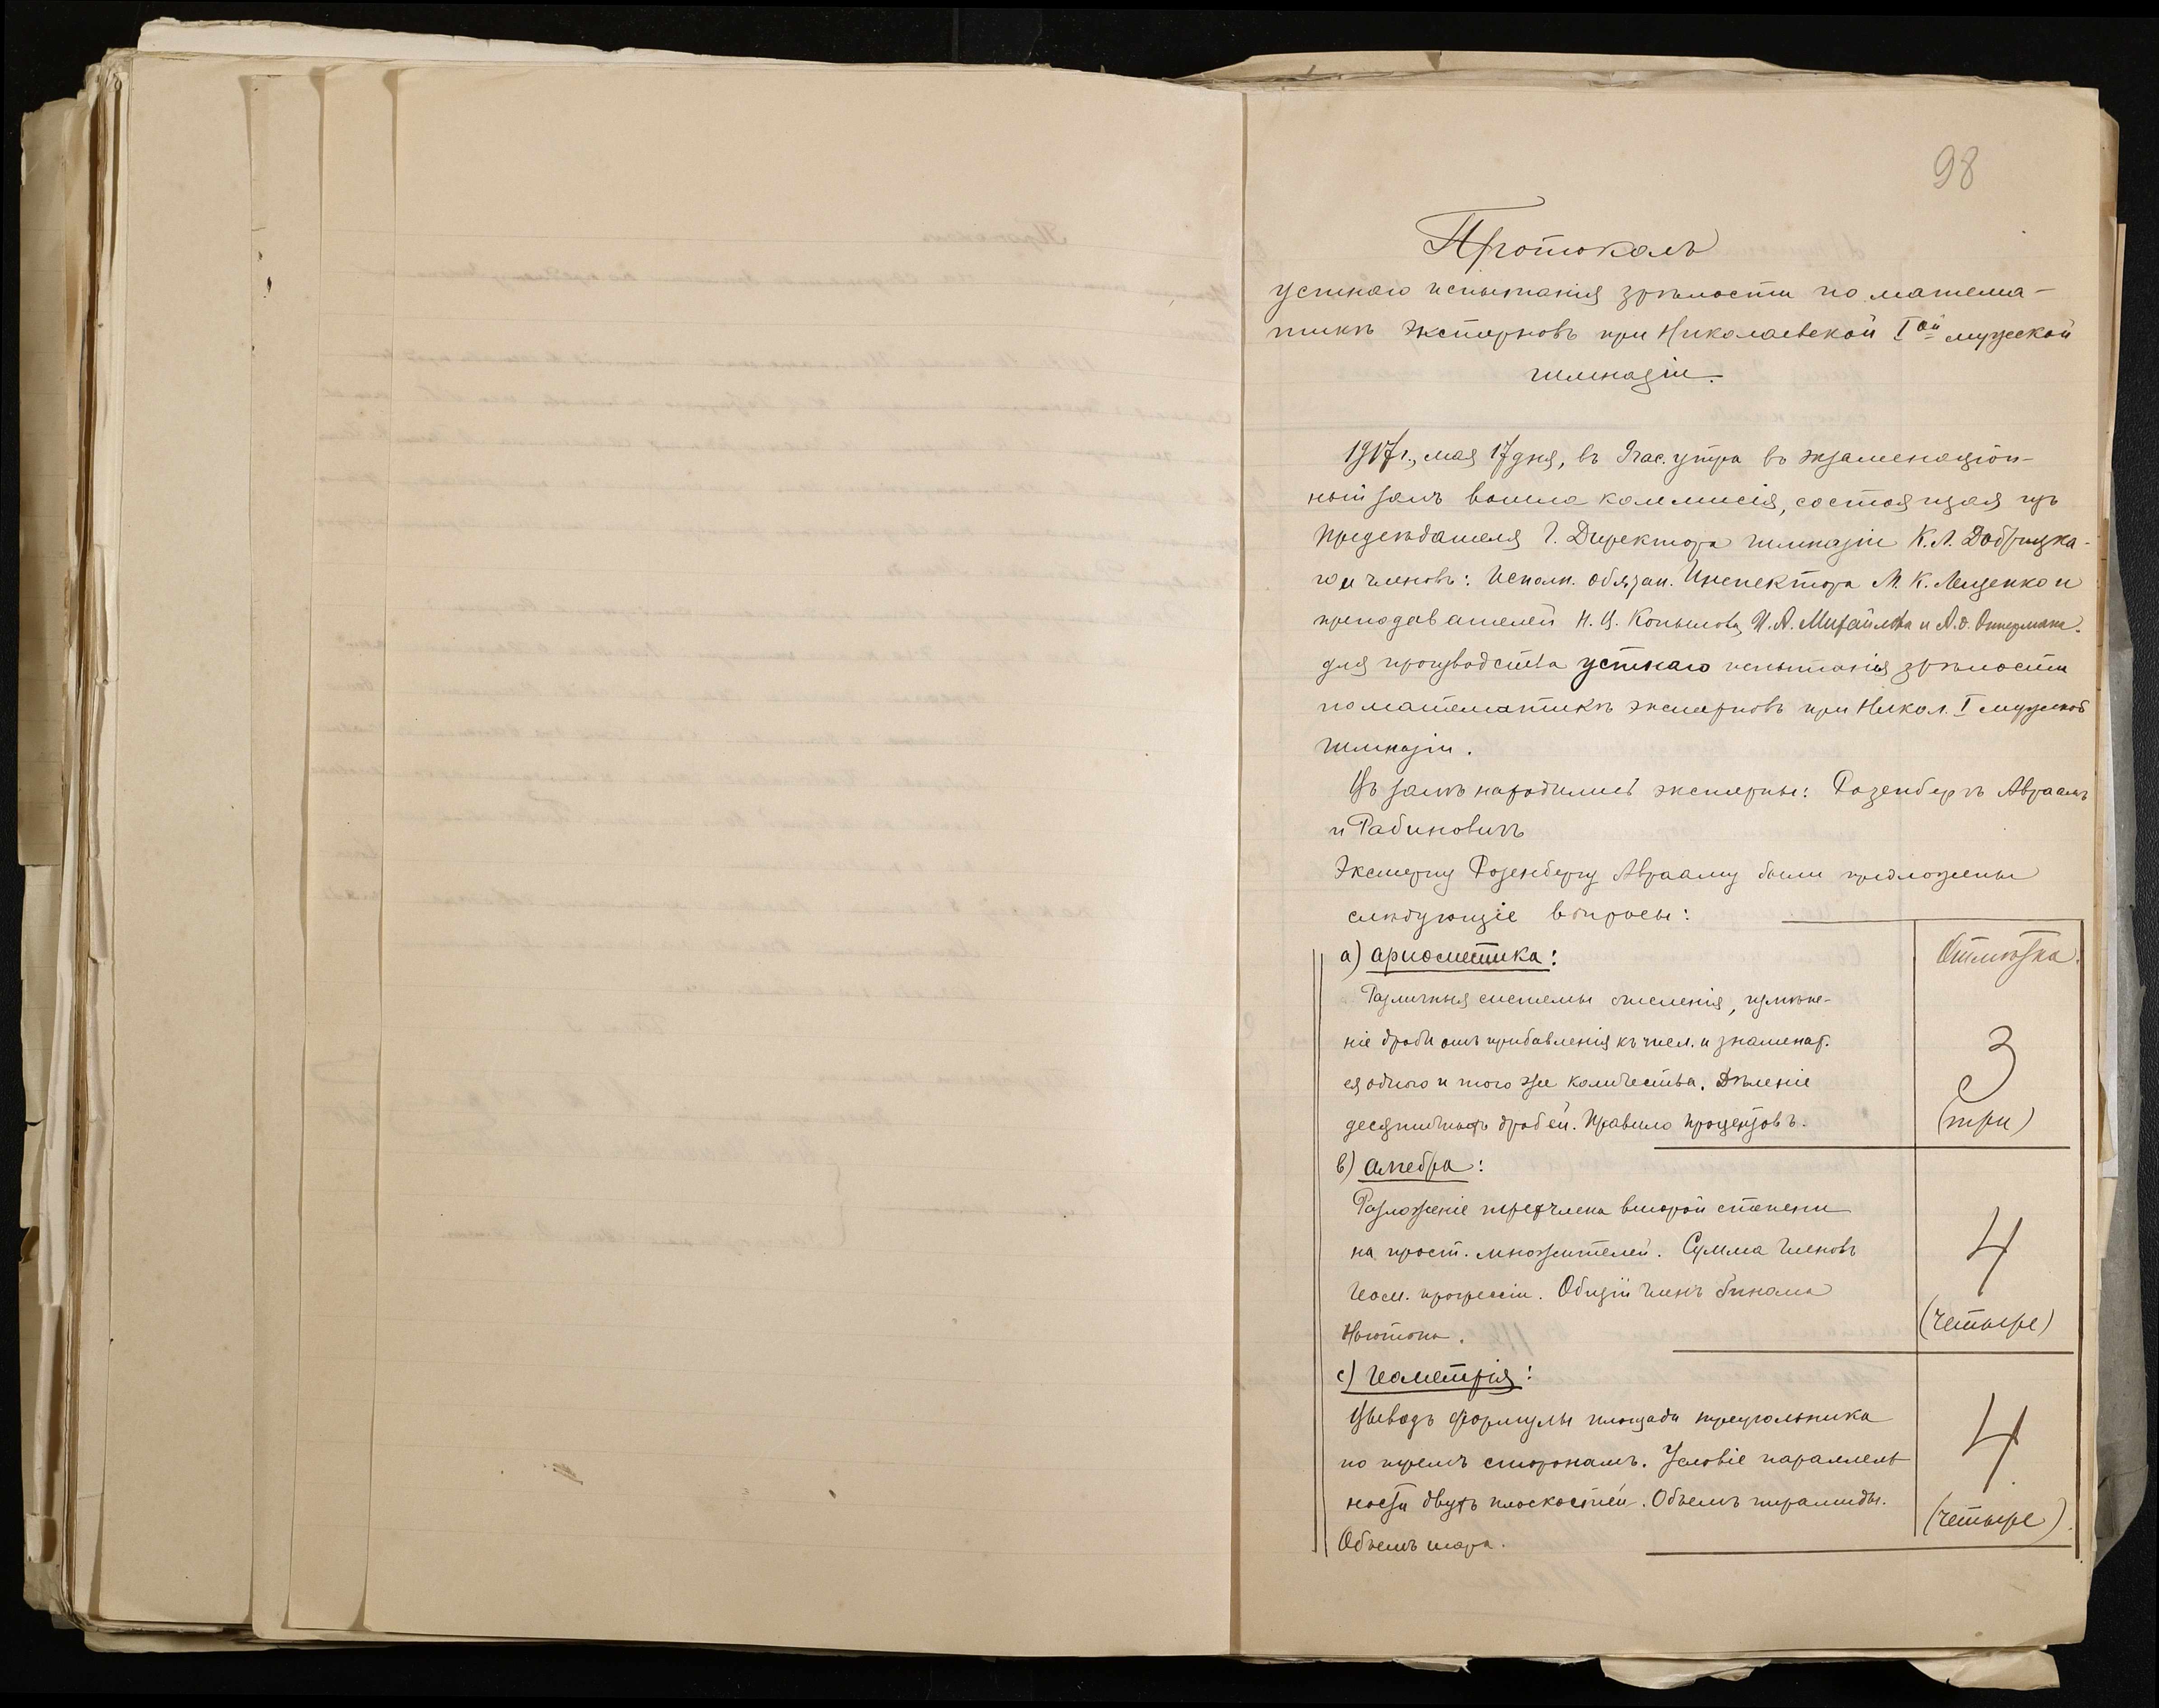 98
Протоколъ
устнаго испытанія зрѣлости по матема-
тикѣ экстерновъ при Николаевской I ой мужской
гимназіи.
1917 г., мая 17 дня, въ 9 час. утра въ экзаменаціон-
ный залъ вошла коммисія, состоящая изъ
предсѣдателя Г. Директора гимназіи К. Л. Добрицка-
го и членовъ: Исполн. обязан. Инспектора М. К. Лещенко и
преподавателей Н. И. Копылова, И. А. Михайлова и А. О.
для производства устнаго испытанія зрѣлости
по математикѣ экстерновъ при Никол. I мужской
гимназіи.
Въ залѣ находились экстерны: Розенбергъ Авраамъ
и Рабиновичъ
Экстерну Розенбергу Аврааму были предложены
слѣдующіе вопросы:
Отмѣтка.
а) ариѳметика:
Различныя системы счисленія, измѣне-
ніе дроби отъ прибавленія къ числ. и знаменат.
ея одного и того же количества. Дѣленіе
десятичныхъ дробей. Правило процентовъ.
3
(три)
в) алгебра:
Разложеніе трехчлена второй степени
на прост. множителей. Сумма членовъ
геом. прогрессіи. Общій членъ бинома
Ньютона.
4
(четыре)
с) геометрія:
Выводъ формулы площади треугольника
по тремъ сторонамъ. Условіе параллель-
ности двухъ плоскостей. Объемъ пирамиды.
Объемъ шара.
4
(четыре).